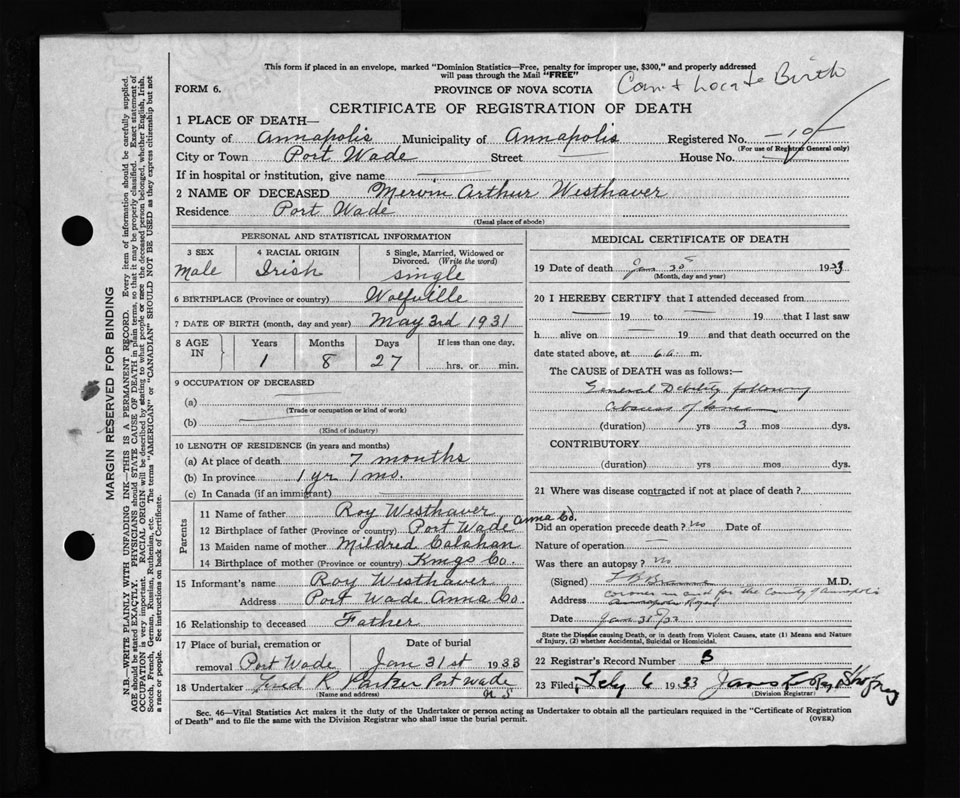 This form if placed in an envelope, marked "Dominion Statistics—Free, penalty for improper use, $300," and properly addressed
will pass through the Mail "FREE"
FORM 6.
PROVINCE OF NOVA SCOTIA
Can't Locate Birth
CERTIFICATE OF REGISTRATION OF DEATH
1 PLACE OF DEATH—
County of Annapolis Municipality of Annapolis Registered No. —10—
(For use of Registrar General only)
City or Town Port Wade Street House No.
If in hospital or institution, give name
2 NAME OF DECEASED Mervin Arthur Westhaver
Residence Port Wade
(Usual place of abode)
PERSONAL AND STATISTICAL INFORMATION
3 SEX
Male
4 RACIAL ORIGIN
Irish
5 Single, Married, Widowed or
Divorced. (Write the word)
single
6 BIRTHPLACE (Province or country) Wolfville
7 DATE OF BIRTH (month, day and year) May 3rd 1931
8 AGE IN
Years Months Days If less than one day.
1 8 27 hrs. or min.
9 OCCUPATION OF DECEASED
(a)
(Trade or occupation or kind of work)
(b)
(Kind of industry)
10 LENGTH OF RESIDENCE (in years and months)
(a) At place of death 7 months
(b) In province 1 yr 1 mo.
(c) In Canada (if an immigrant)
Parents
11 Name of father Roy Westhaver
12 Birthplace of father (Province or country) Port Wade Anna Co.
13 Maiden name of mother Mildred Calahan
14 Birthplace of mother (Province or country) Kings Co.
15 Informant's name Roy Westhaver
Address Port Wade Anna Co.
16 Relationship to deceased Father
17 Place of burial, cremation or Date of burial
removal Port Wade Jan 31st 1933
18 Undertaker Fred R Parker Port Wade
N S
(Name and address)
MEDICAL CERTIFICATE OF DEATH
19 Date of death Jan 30 1933
(Month, day and year)
20 I HEREBY CERTIFY that I attended deceased from
19 to 19 that I last saw
h alive on 19 and that death occurred on the
date stated above, at 6 a. m.
The CAUSE of DEATH was as follows:—
General Debility following
abscess of
(duration) yrs 3 mos dys.
CONTRIBUTORY
(duration) yrs mos dys.
21 Where was disease contracted if not at place of death?
Did an operation precede death? No Date of
Nature of operation —
Was there an autopsy? No
(Signed) M.D.
coroner in and for the County of Annapolis
Address Annapolis Royal
Date Jan 30/33
State the Disease causing Death, or in death from Violent Causes, state (1) Means and Nature
of Injury, (2) whether Accidental, Suicidal or Homicidal.
22 Registrar's Record Number 3
23 Filed, Feby 6 1933
(Division Registrar)
Sec. 46—Vital Statistics Act makes it the duty of the Undertaker or person acting as Undertaker to obtain all the particulars required in the "Certificate of Registration
of Death" and to file the same with the Division Registrar who shall issue the burial permit.
(OVER)
MARGIN RESERVED FOR BINDING
N.B.—WRITE PLAINLY WITH UNFADING INK—THIS IS A PERMANENT RECORD. Every item of information should be carefully supplied.
AGE should be stated EXACTLY. PHYSICIANS should STATE CAUSE OF DEATH in plain terms, so that it may be properly classified. Exact statement of
OCCUPATION is very important. RACIAL ORIGIN will be described by stating to what people or race the deceased person belonged, whether English, Irish,
Scotch, French, German, Russian, Ruthenian, etc. The terms "AMERICAN" or "CANADIAN" SHOULD NOT BE USED as they express citizenship but not
a race or people. See instructions on back of Certificate.